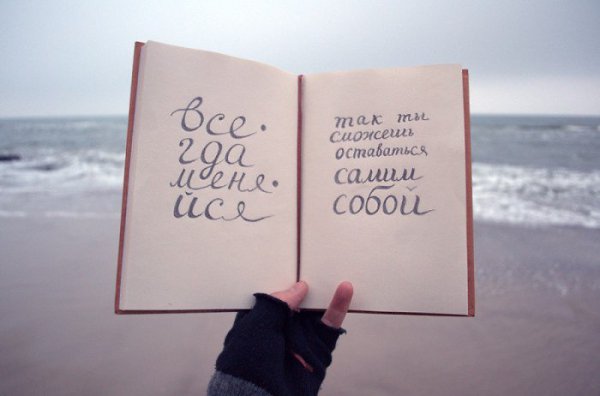 все·
гда
меня·
йся
так ты
сможешь
оставаться
самим
собой